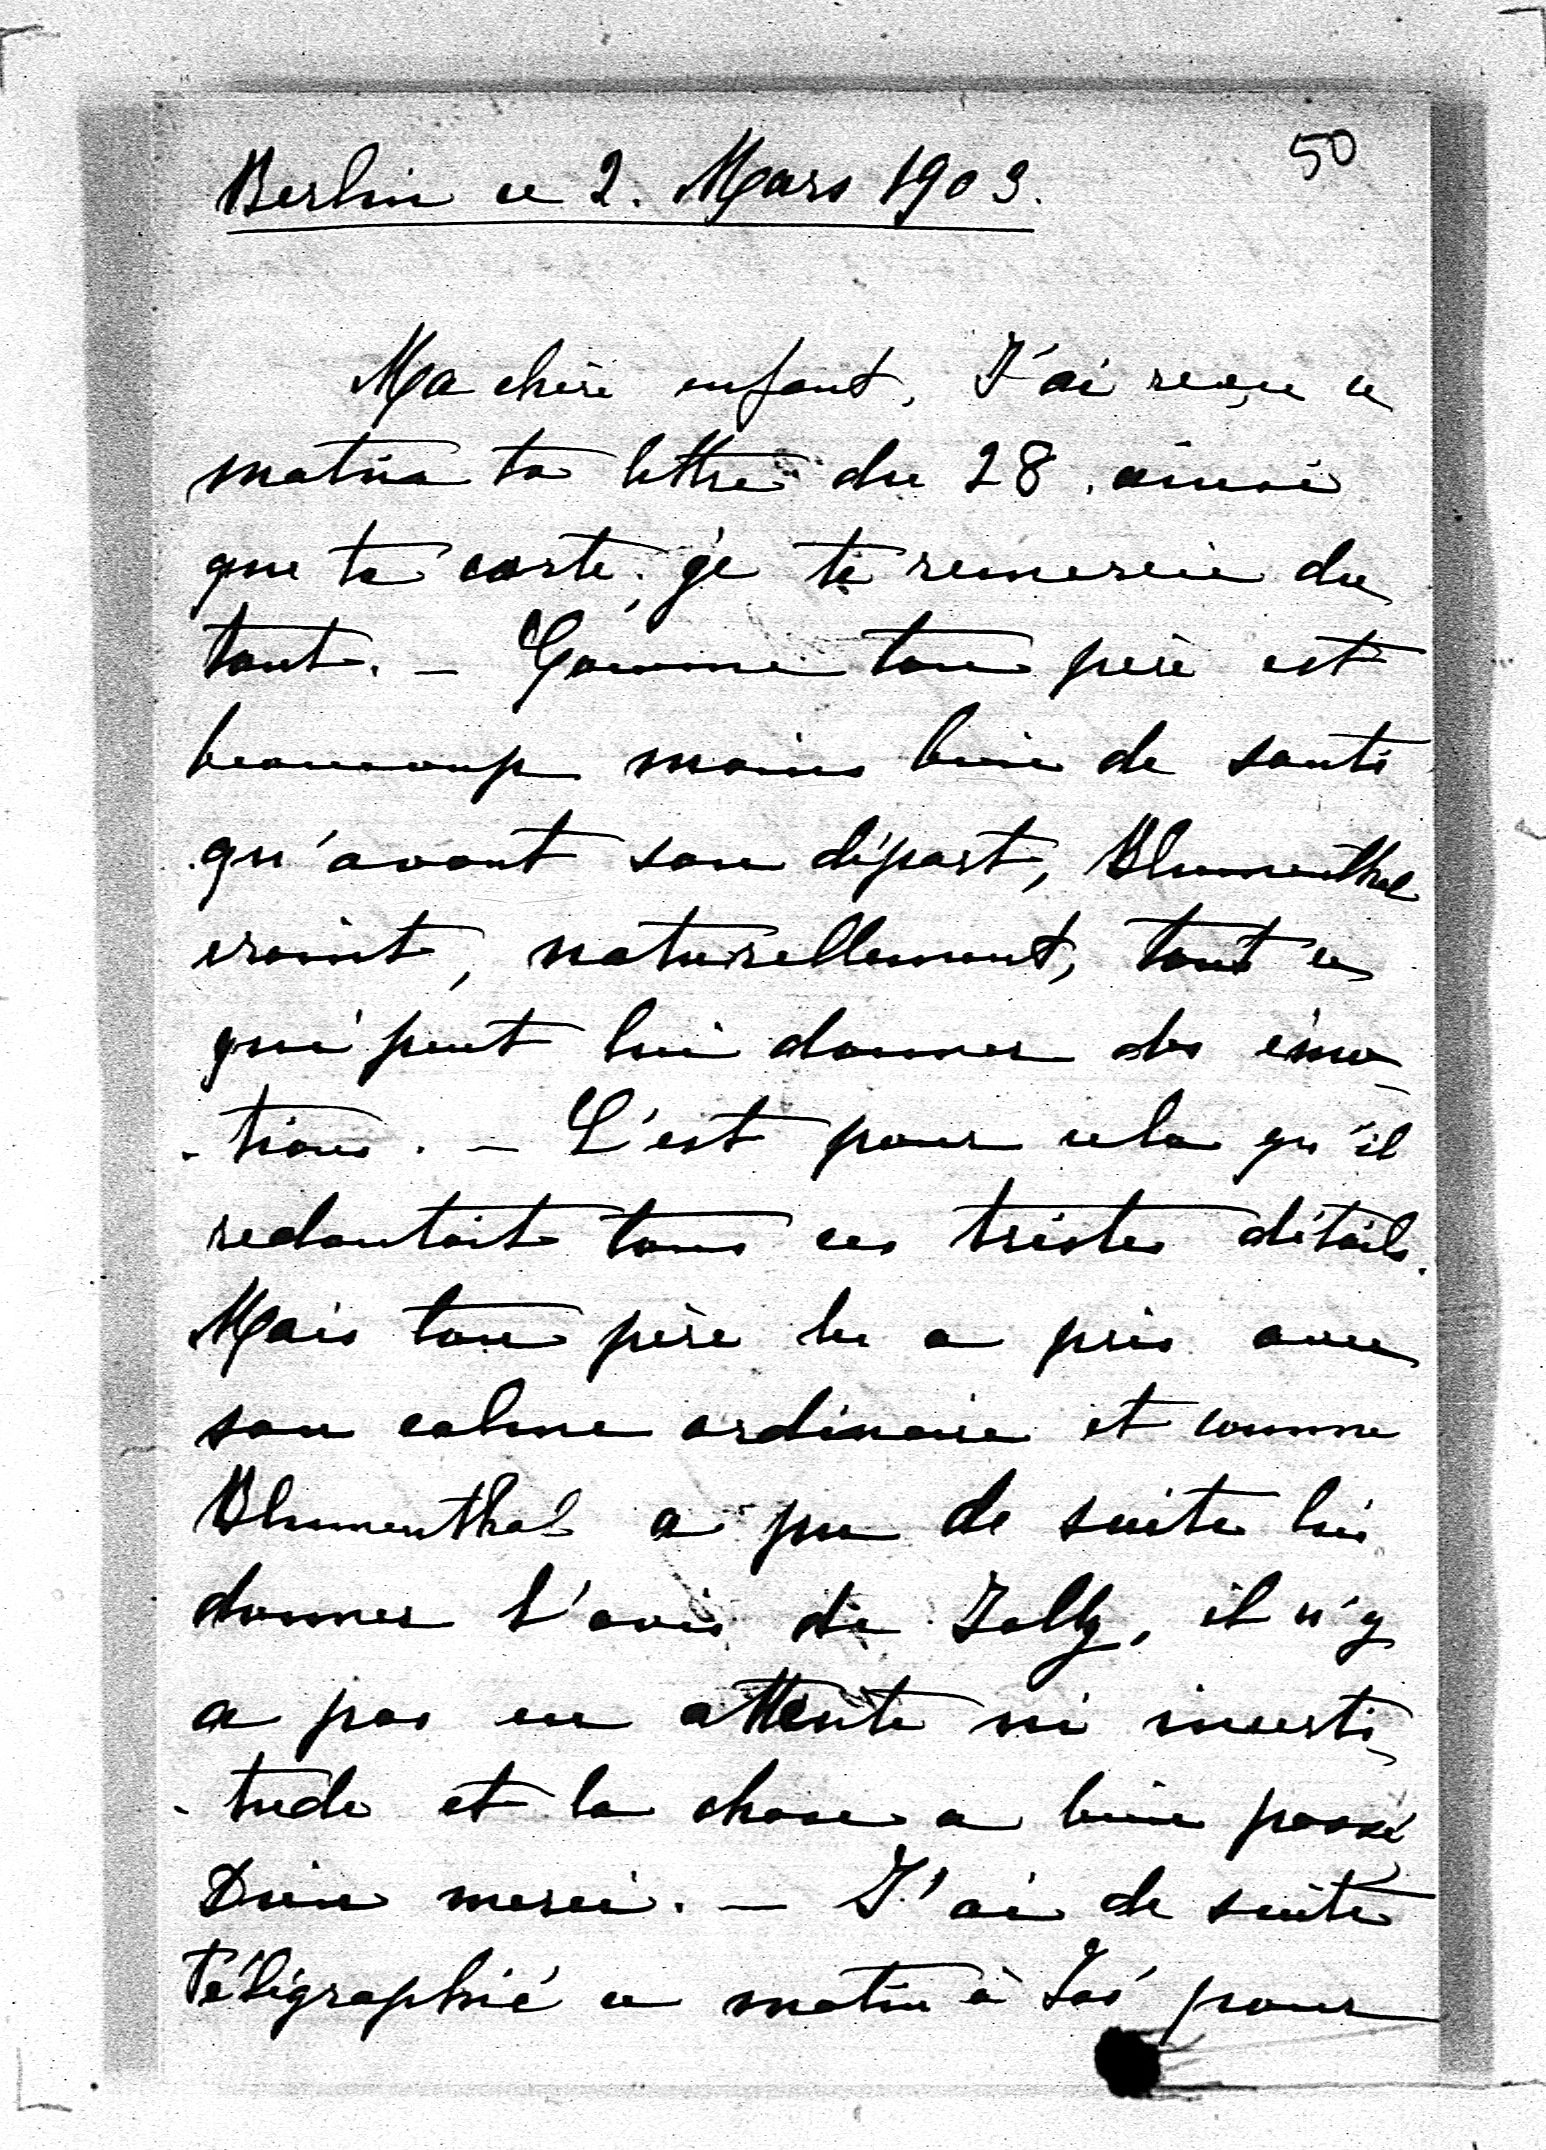 50
Berlin ce 2. Mars 1903.
Ma chère enfant, J'ai reçu ce
matin ta lettre du 28, ainsi
que ta carte; je te remercie du
tout. — Comme ton père est
beaucoup moins bien de santé
qu'avant son départ, Blumenthal
craint, naturellement, tout ce
qui peut lui donner des émo-
-tions. — C'est pour cela qu'il
redoutait tous ces tristes détails.
Mais ton père les a pris avec
son calme ordinaire et comme
Blumenthal a pu de suite lui
donner l'avis de Jolly, il n'y
a pas eu attente ni incerti-
-tude et la chose a bien passé
Dieu merci. — J'ai de suite
télégraphié ce matin à pour